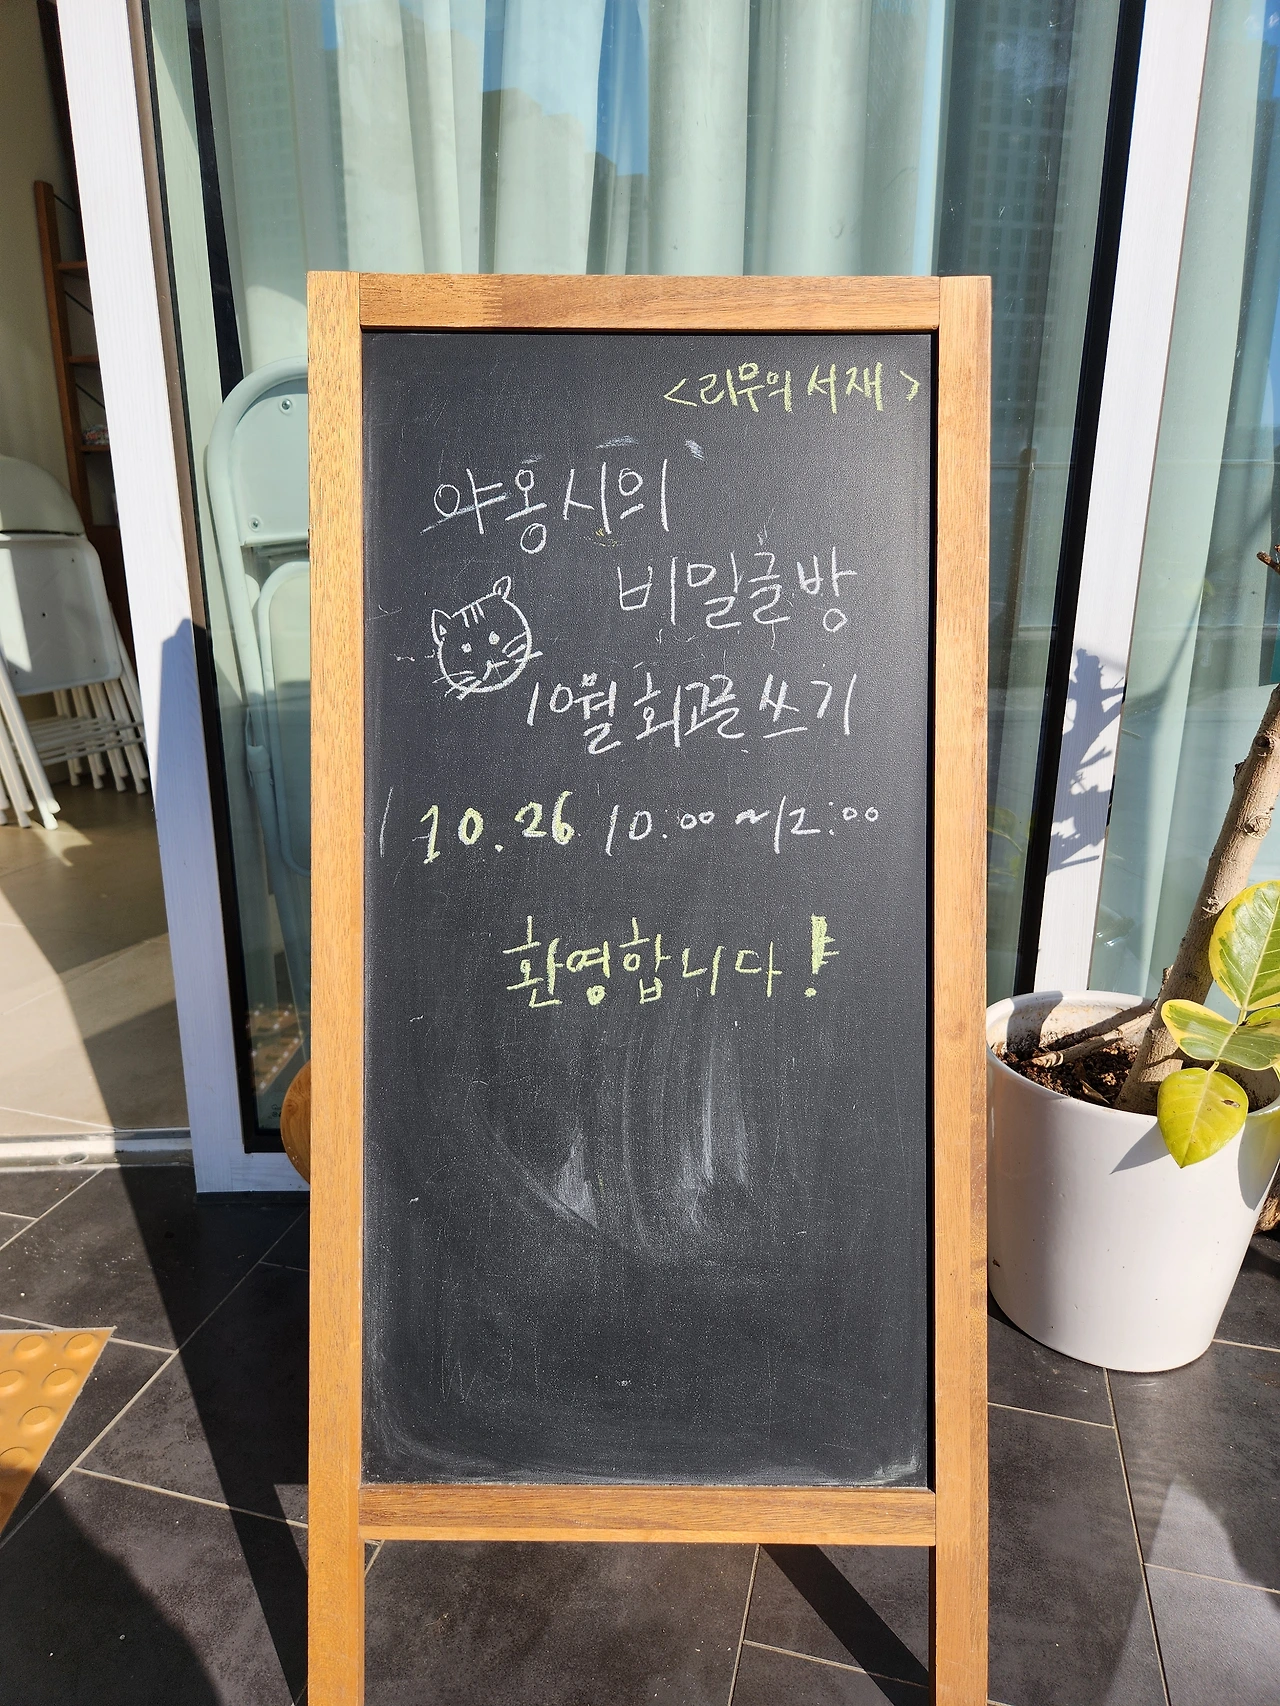 <리무의 서재>
야옹시의
비밀글방
10월 회고글 쓰기
10.26 10:00~12:00
환영합니다!